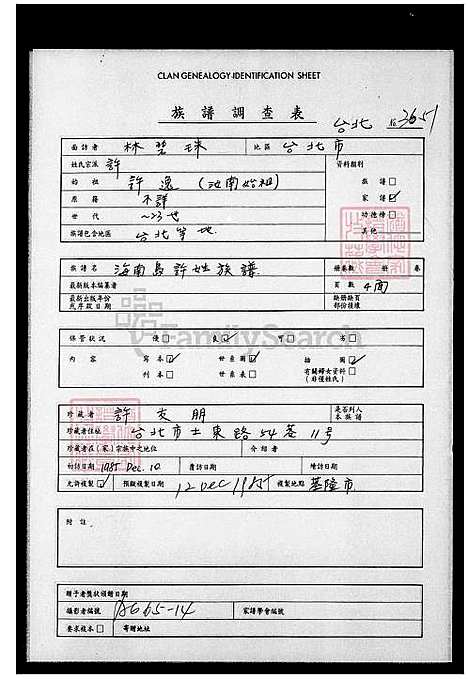 CLAN GENEALOGY IDENTIFICATION SHEET
族譜調查表 台北 No. 3651
面訪者 林瑩珠 地區 台北市
姓氏宗派 許 資料類別
始祖 許逸 (汝南始祖) 族譜 □
原籍 不詳 家譜 ☑
世代 ~23世 功德榜 □
族譜包含地區 台北等地 其他
族譜名 海南島許姓族譜 冊卷數 冊 卷
最新版本編纂者 頁數 4面
最新出版年份 缺冊缺頁
或序跋日期 部份後補
保管狀況 優 □ 良 ☑ 可 □ 劣 □
內容 寫本 ☑ 世系圖 ☑ 插圖 ☑
刊本 □ 世系表 □ 有關婦女資料 □
(非僅姓氏)
FamilySearch
珍藏者 許友朋 是否列入
本族譜
珍藏者住址 台北市士東路54巷11号
珍藏者在(家)宗族中之地位 介紹者
初訪日期 1985 Dec. 10 復訪日期 續訪日期
允許複製 ☑ 預擬複製日期 12 Dec 1985 複製地點 基隆市
附註
贈予者獎狀頒贈日期
攝影者編號 AG65-14 家譜學會編號
要求複本 □ 寄贈地址